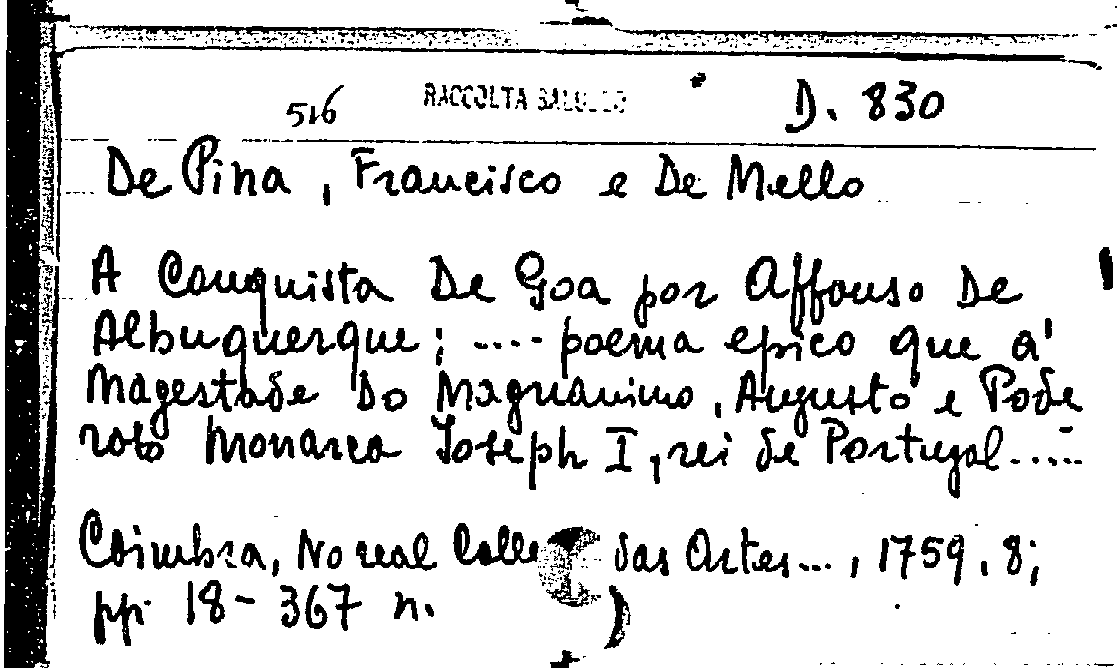 516 RACCOLTA D. 830
De Pina, Francisco e De Mello
A Conquista De Goa por Affonso De
Albuquerque; .... poema epico que a'
Magestade Do Magnanimo, Augusto e Pode
roso Monarca Joseph I, rei de Portugal.....
Coimbra, No real das Artes..., 1759, 8;
pp. 18-367 n.